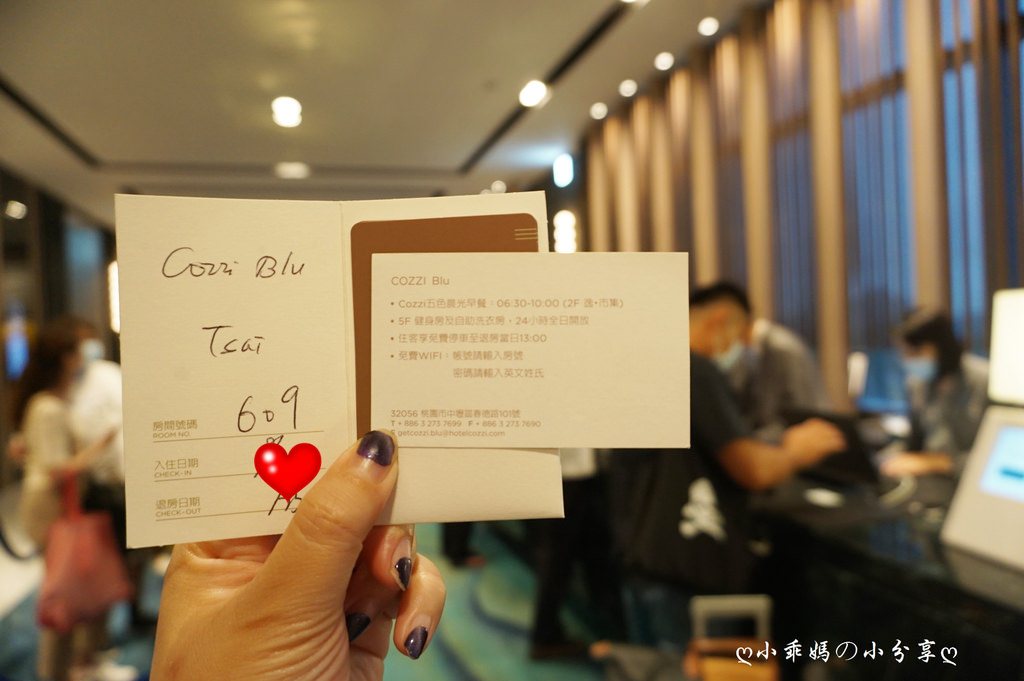 Cozzi Blu
Tsai
房間號碼 609
ROOM NO
入住日期
CHECK-IN
退房日期
CHECK-OUT
COZZI Blu
• Cozzi五色晨光早餐：06:30-10:00 (2F 逸•市集)
• 5F 健身房及自助洗衣房，24小時全日開放
• 住客享免費停車至退房當日13:00
• 免費WIFI：帳號請輸入房號
密碼請輸入英文姓氏
32056 桃園市中壢區春德路101號
T + 886 3 273 7699 F + 886 3 273 7690
E getcozzi.blu@hotelcozzi.com
ღ小乖媽の小分享ღ